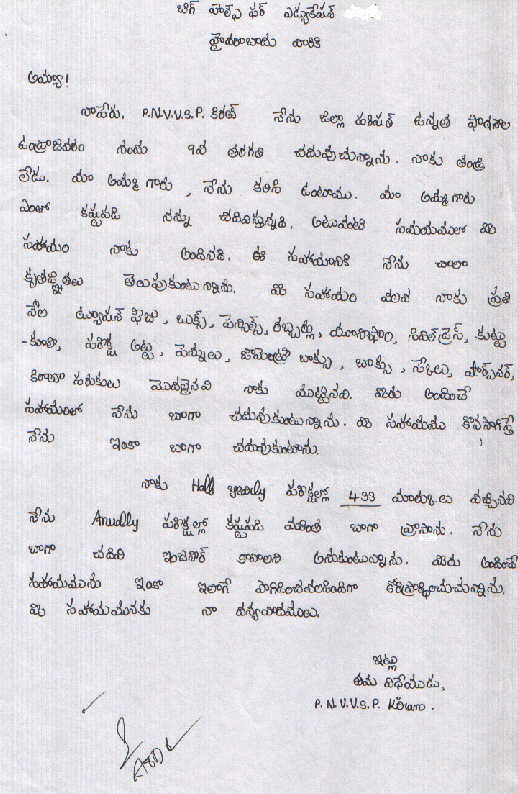 బిగ్ హెల్ప్ ఫర్ ఎడ్యుకేషన్
హైదరాబాదు వారికి
అయ్యా!
నాపేరు. P.N.V.V.S.P. కిరణ్ నేను జిల్లా పరిషత్ ఉన్నత పాఠశాల
ఉండ్రాజవరం నందు 9వ తరగతి చదువుచున్నాను. నాకు తండ్రి
లేడు. మా అమ్మగారు, నేను కలిసి ఉంటాము. మా అమ్మగారు
ఎంతో కష్టపడి నన్ను చదివిస్తున్నది. అటువంటి సమయములో మీ
సహాయం నాకు అందినది. ఈ సహాయానికి నేను చాలా
కృతజ్ఞతలు తెలుపుకుంటున్నాను. మీ సహాయం వలన నాకు ప్రతి
నెల ట్యూషన్ ఫీజు, బుక్స్, పెన్సిల్స్, రబ్బర్లు, యూనిఫాం, సివిల్ డ్రెస్, కుట్టు
-కూలి, పరీక్ష అట్ట, పెన్నులు, జామెంట్రీ బాక్సు, బాక్సు, స్కేలు, షార్ప్‌నర్,
కిరాణా సరుకులు మొదలైనవి నాకు ముట్టినవి. మీరు అందించే
సహాయంతో నేను బాగా చదువుకుంటున్నాను. మీ సహాయము కొనసాగిస్తే
నేను ఇంకా బాగా చదువుకుంటాను.
నాకు Half yearly పరీక్షల్లో 433 మార్కులు వచ్చినవి
నేను Anually పరీక్షల్లో కష్టపడి చదివి బాగా వ్రాసాను. నేను
బాగా చదివి ఇంజనీర్ కావాలని అనుకుంటున్నాను. మీరు అందించే
సహాయమును ఇంకా ఇలాగే సాగించవలసిందిగా కోరిప్రార్థించుచున్నాను.
మీ సహాయమునకు నా ధన్యవాదములు.
ఇట్లు
తమ విధేయుడు,
P.N.V.V.S.P. కిరణ్.